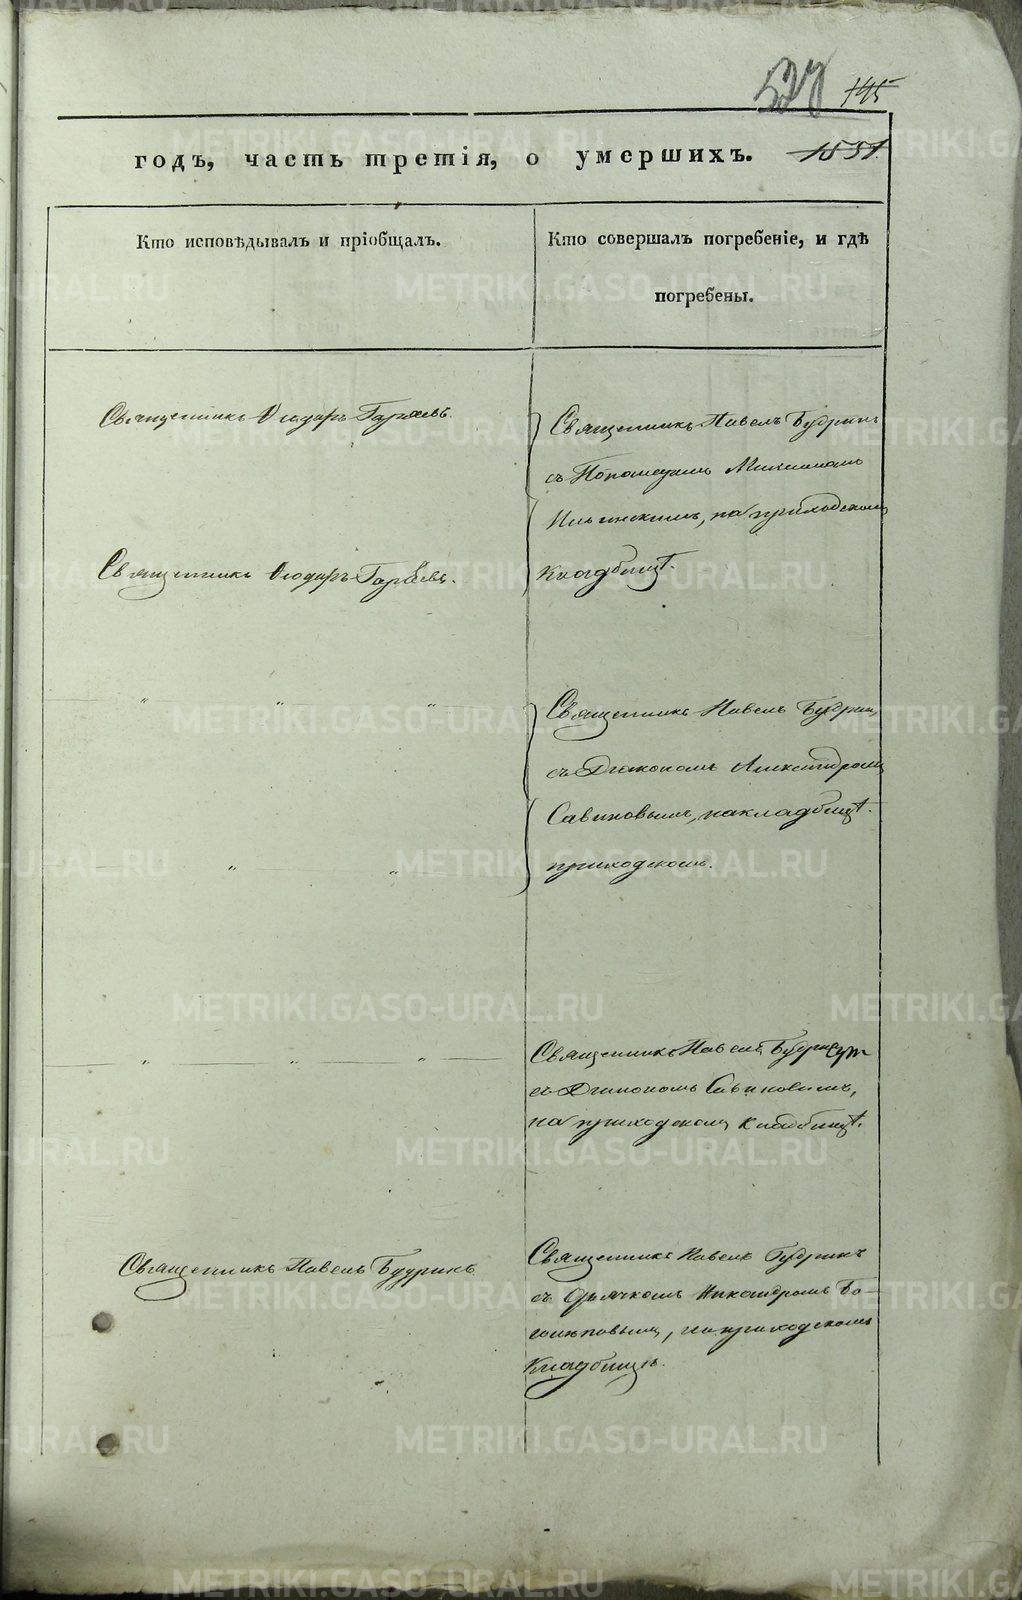 527 145
годъ, часть третія, о умершихъ. 1551.
Кто исповѣдывалъ и пріобщалъ.
Кто совершалъ погребеніе, и гдѣ
погребены.
Священникъ Ѳеодоръ Гаряевъ.
Священникъ Павелъ Будринъ
съ Пономаремъ
Ильинскимъ, на приходскомъ
кладбищѣ.
Священникъ Ѳеодоръ Гаряевъ.
" " "
Священникъ Павелъ Будринъ,
съ Діакономъ Александромъ
Савиновымъ, на кладбищѣ
приходскомъ.
" "
" " "
Священникъ Павелъ Будринъ
съ Діакономъ Савиновымъ,
на приходскомъ кладбищѣ.
Священникъ Павелъ Будринъ
Священникъ Павелъ Будринъ
съ Дьячкомъ Никандромъ Бо-
голѣповымъ, на приходскомъ
кладбищѣ.
METRIKI.GASO-URAL.RU